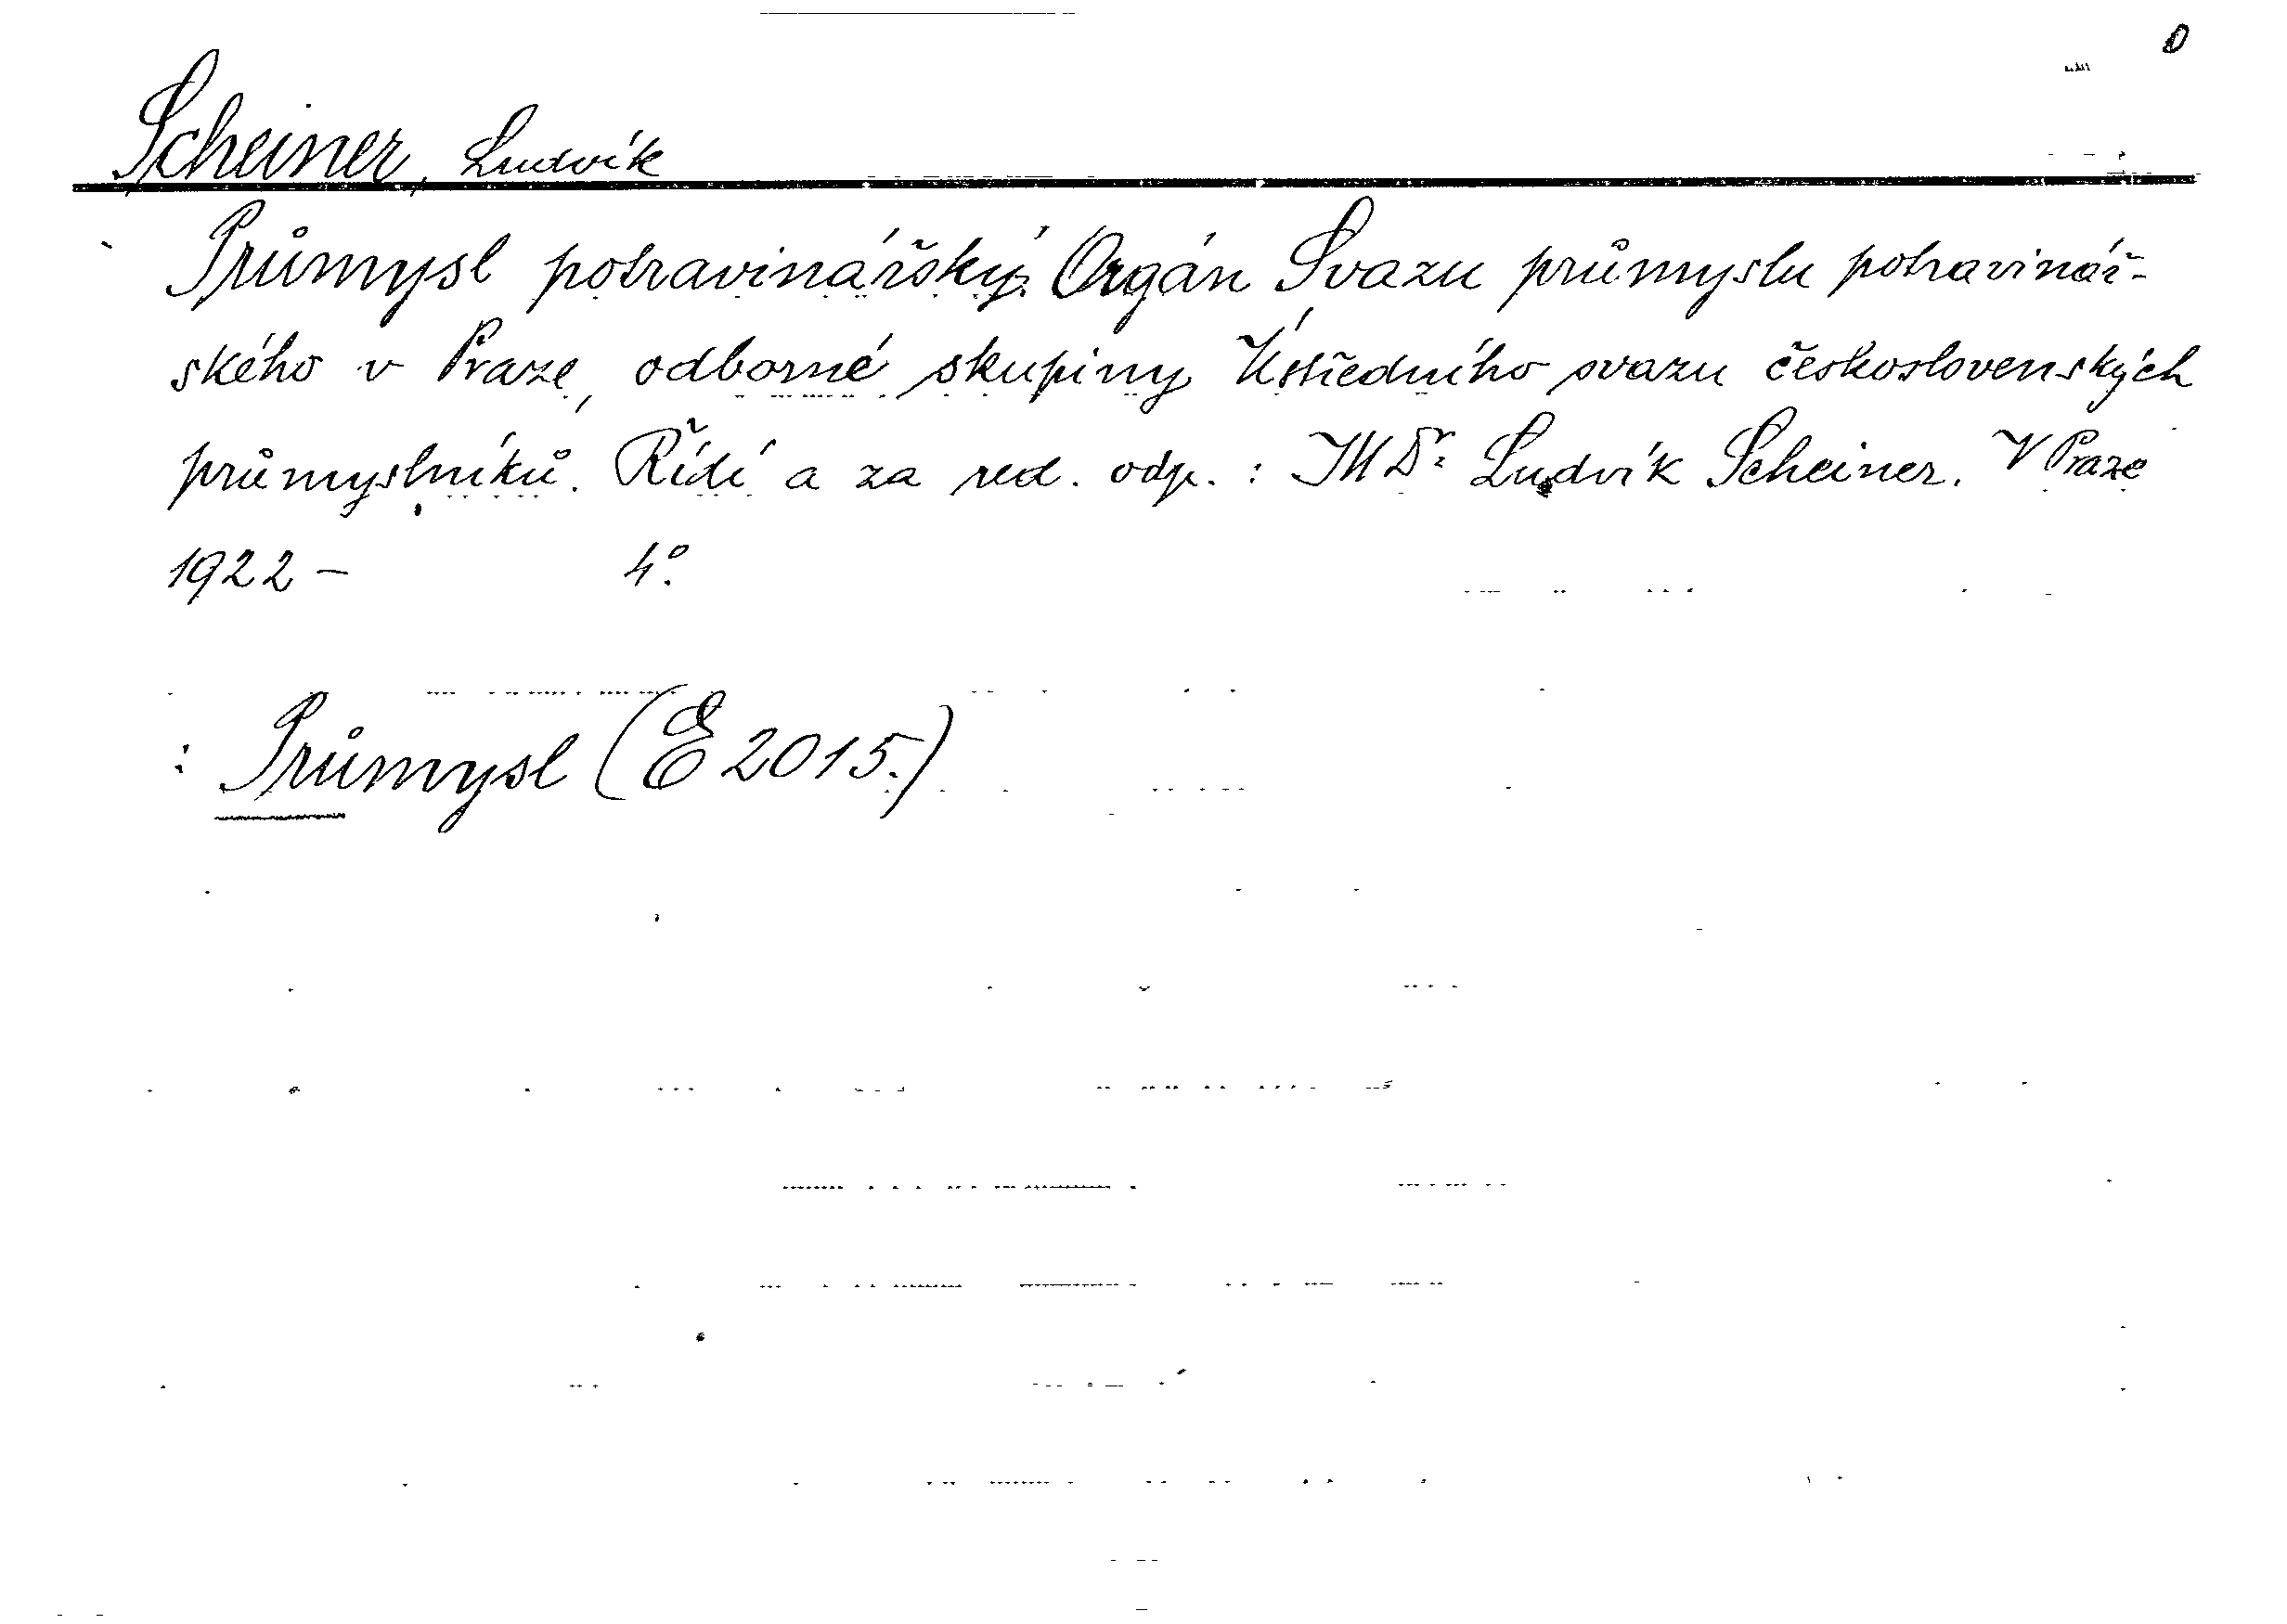 Scheiner, Ludvík
Průmysl potravinářský. Orgán Svazu průmyslu potravinář-
ského v Praze, odborné skupiny Ústředního svazu československých
průmyslníků. Řídí a za red. odp. : JUDr. Ludvík Scheiner. V Praze
1922 – 4°.
: Průmysl (E 2015.)